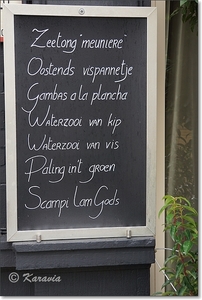 Zeetong "meunière"
Oostends vispannetje
Gambas a la plancha
Waterzooi van kip
Waterzooi van vis
Paling in't groen
Scampi Lam Gods
© Karavia